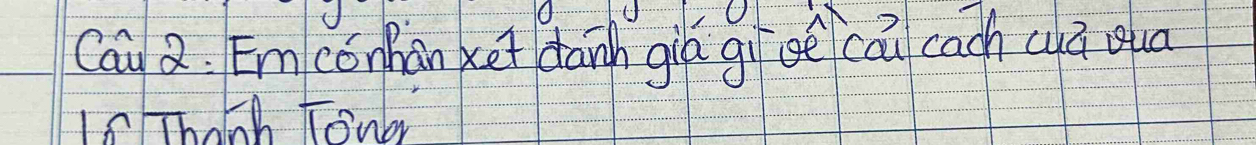 Câu 2: Em có nhận xét đánh giá gì về cải cách của vua
Lê Thánh Tông